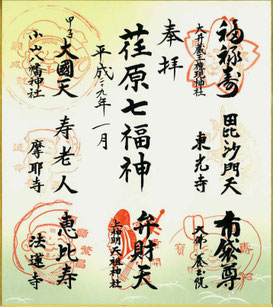 福禄寿
大井蔵王権現神社
毘沙門天
東光寺
布袋尊
大佛養玉院
奉拝
荏原七福神
平成二九年一月
弁財天
上神明天祖神社
甲子
大國天
小山八幡神社
寿老人
摩耶寺
恵比寿
法蓮寺